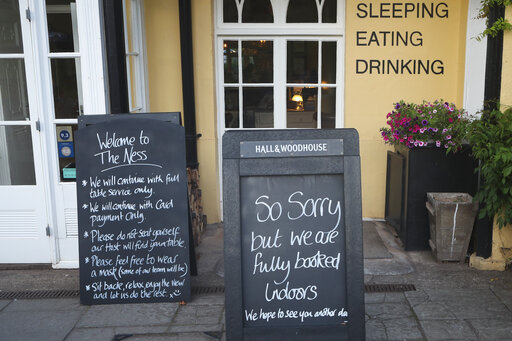 SLEEPING
EATING
DRINKING
Welcome to
The Ness
* We will continue with full
table service only.
* We will continue with Card
payment only.
* Please do not seat yourself
our Host will find you a table.
* Please feel free to wear
a mask (some of our team will be)
* Sit back, relax enjoy the view
and let us do the rest. x
HALL & WOODHOUSE
So Sorry
but we are
fully booked
Indoors
We hope to see you another day
9.3